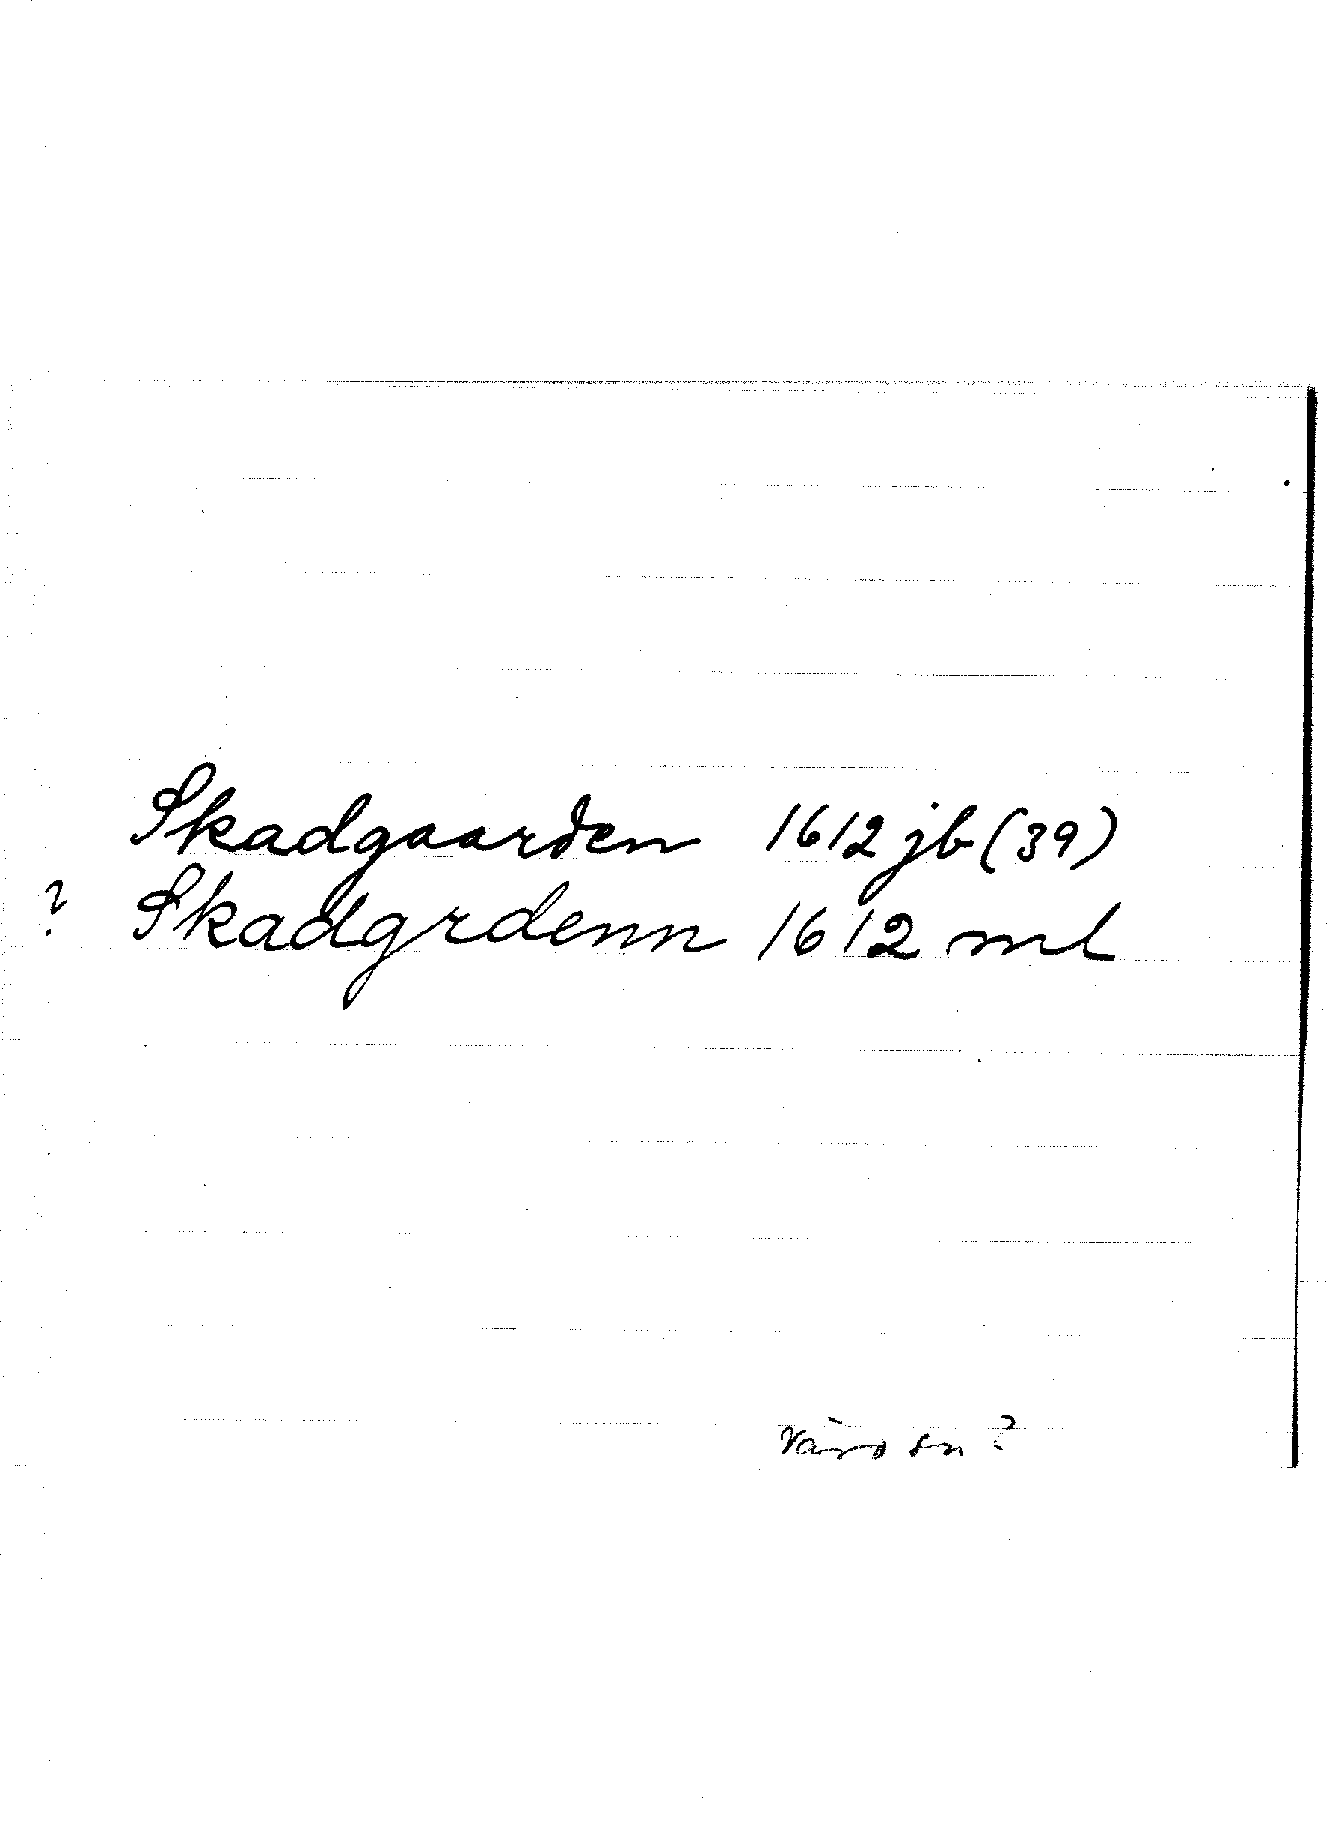 Skadgaarden 1612 jb (39)
? Skadgrdenn 1612 ml
Vård sn?